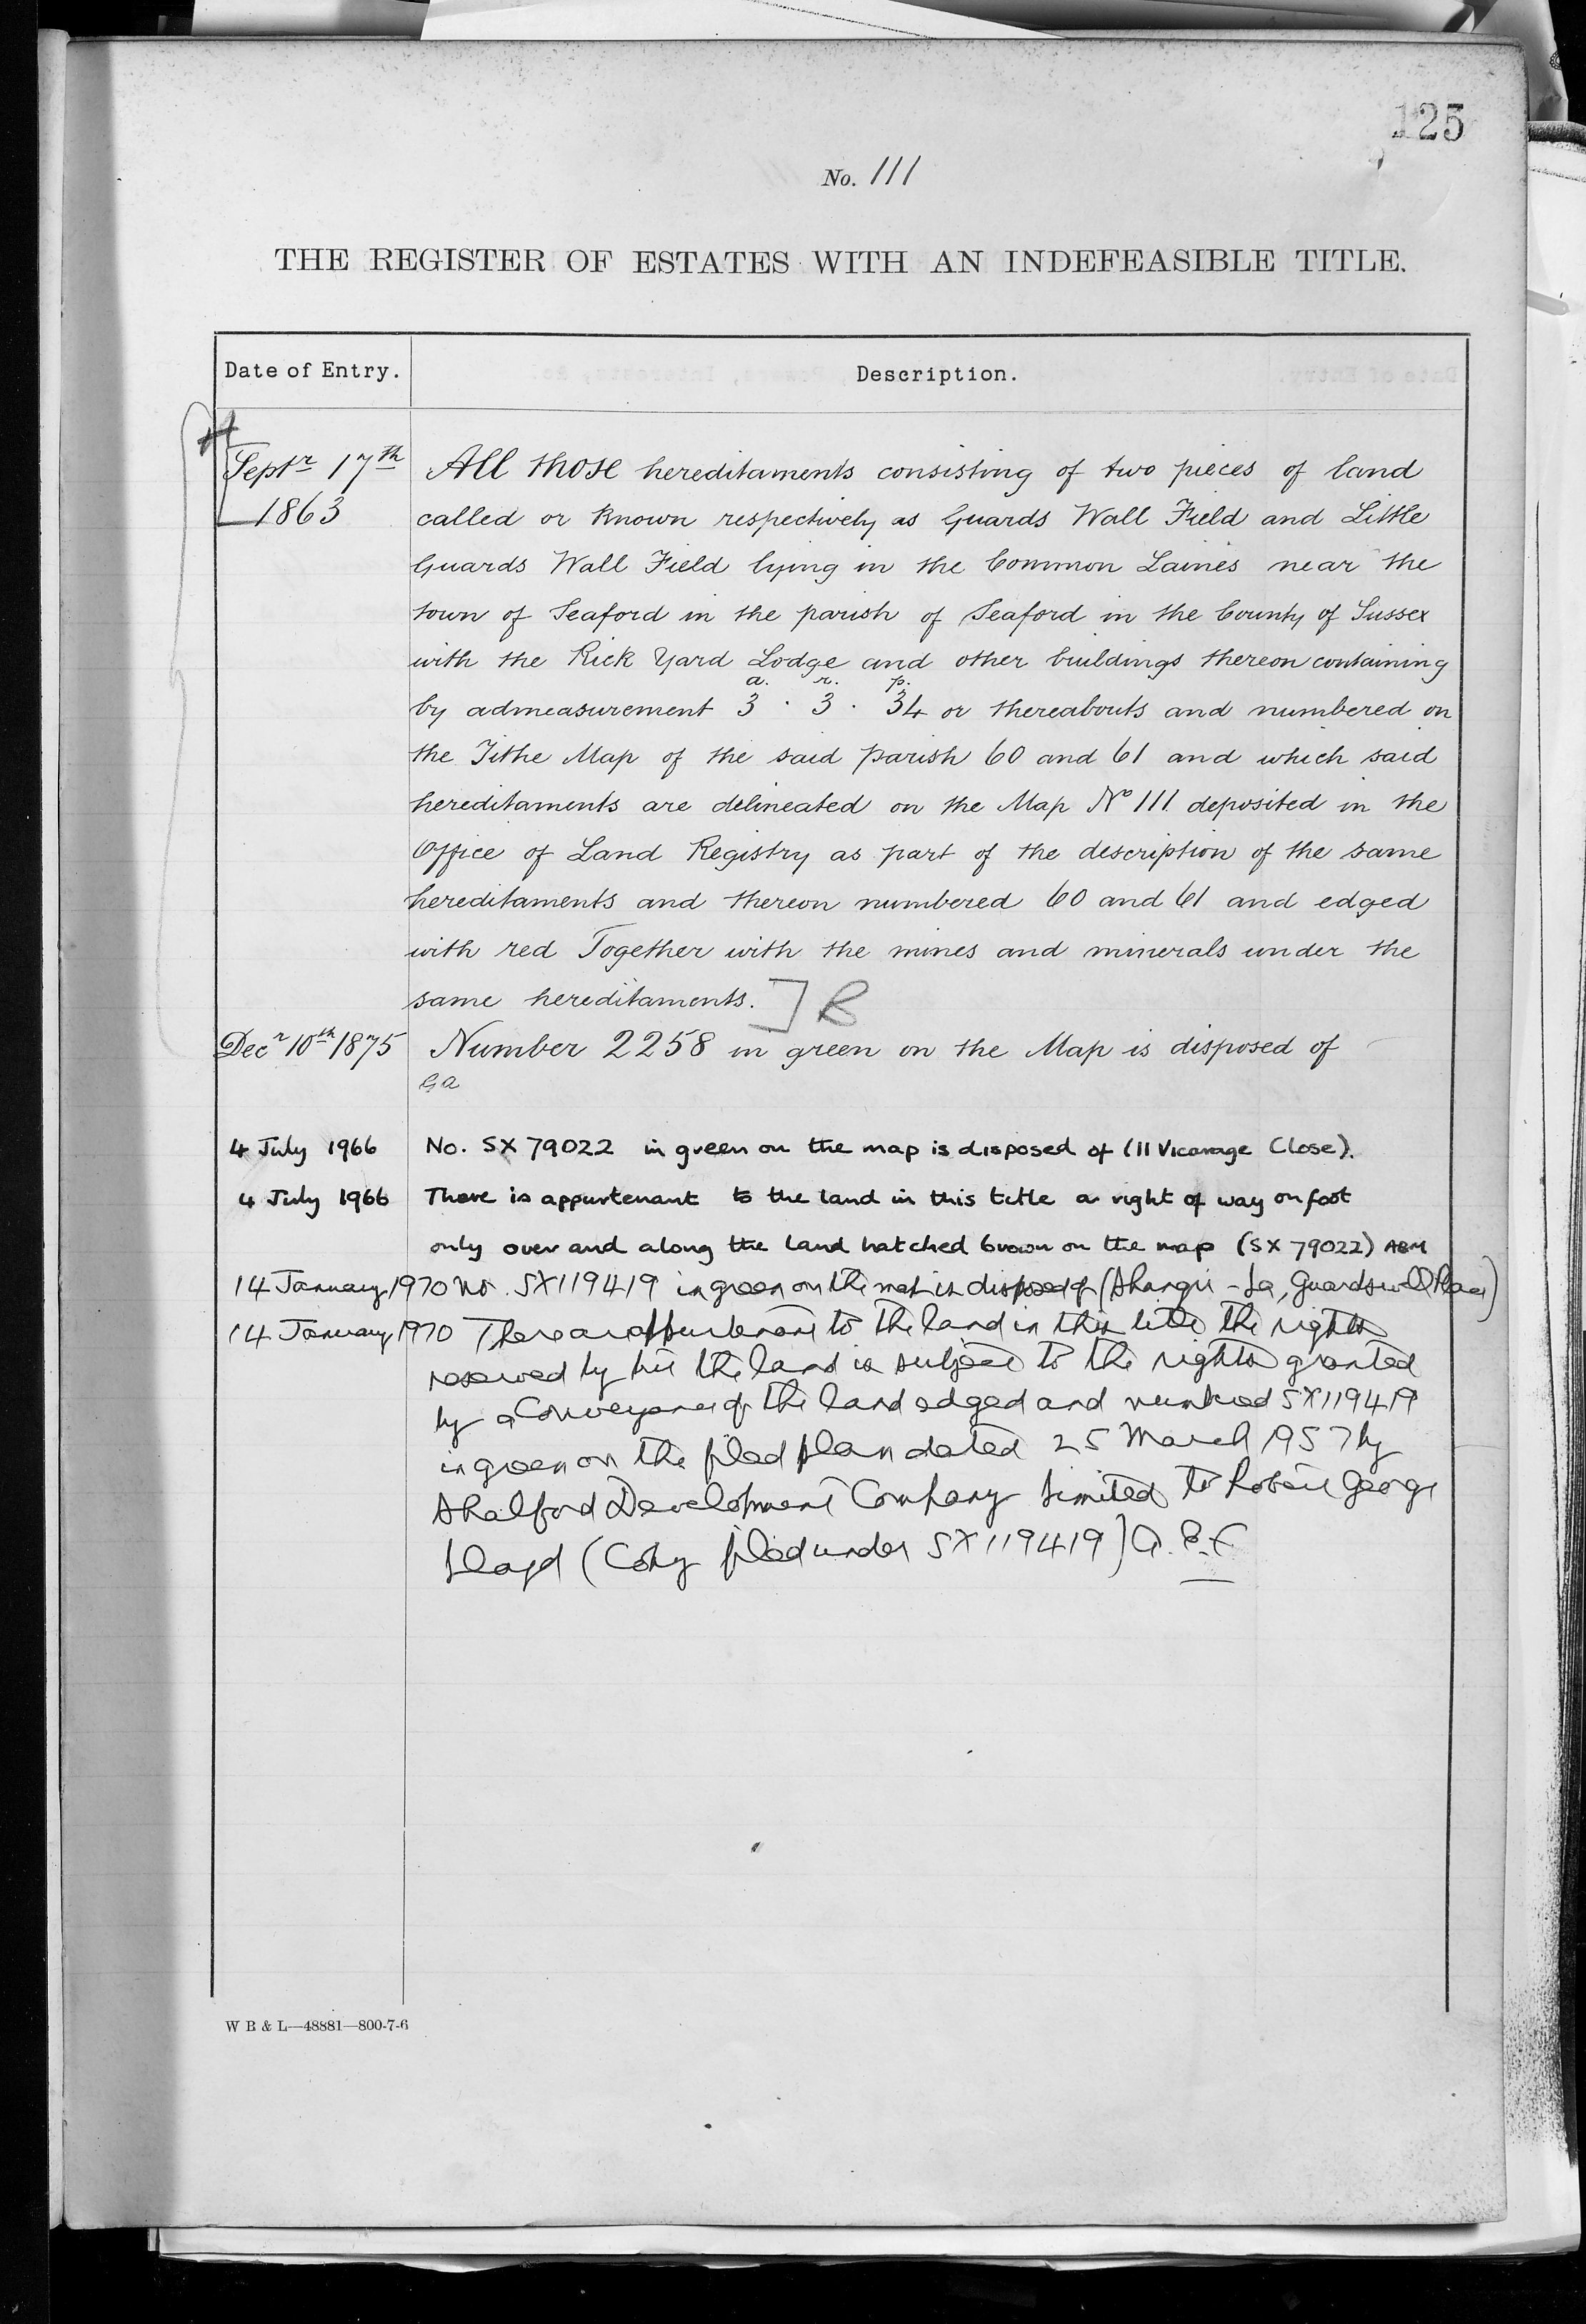 125
No. 111
THE REGISTER OF ESTATES WITH AN INDEFEASIBLE TITLE.
Date of Entry. Description.
Septr 17th All those hereditaments consisting of two pieces of land
1863 called or known respectively as Guards Wall Field and Little
Guards Wall Field lying in the Common Laines near the
town of Seaford in the parish of Seaford in the County of Sussex
with the Rick Yard Lodge and other buildings thereon containing
a. r. p.
by admeasurement 3 . 3 . 34 or thereabouts and numbered on
the Tithe Map of the said parish 60 and 61 and which said
hereditaments are delineated on the Map No 111 deposited in the
Office of Land Registry as part of the description of the same
hereditaments and thereon numbered 60 and 61 and edged
with red Together with the mines and minerals under the
same hereditaments. ] B
Decr 10th 1875 Number 2258 in green on the Map is disposed of
GA
4 July 1966 No. SX 79022 in green on the map is disposed of (11 Vicarage Close).
4 July 1966 There is appurtenant to the land in this title a right of way on foot
only over and along the land hatched brown on the map (SX 79022) ABM
14 January 1970 No. SX119419 in green on the map is disposed of (Shangri-La, Guardswell Place)
14 January 1970 There are appurtenant to the land in this title the rights
reserved by but the land is subject to the rights granted
by a Conveyance of the land edged and numbered SX119419
in green on the filed plan dated 25 March 1957 by
Shalford Development Company Limited to Robert George
Lloyd (Copy filed under SX119419)
W B & L—48881—800-7-6